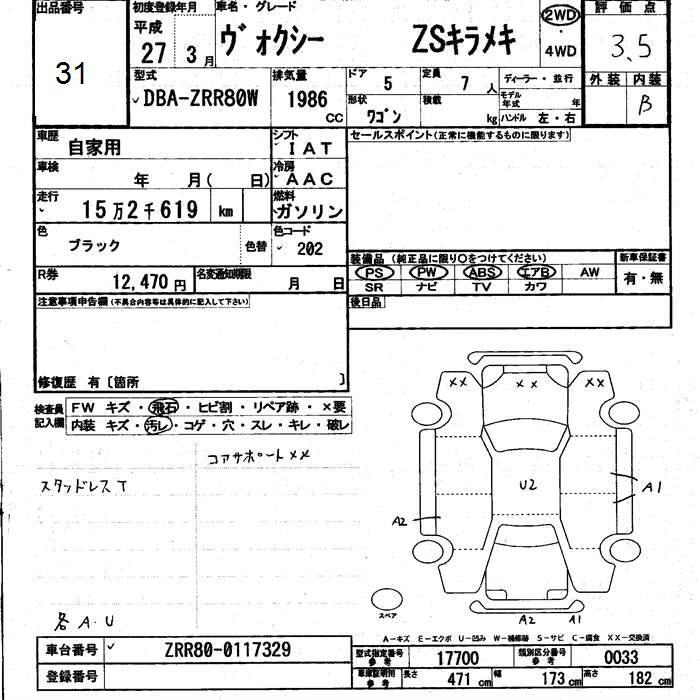 出品番号 31
初度登録年月 平成 27 3月
車名・グレード ヴォクシー ZSキラメキ
2WD・4WD
評価点 3.5
外装 内装 B
型式 DBA-ZRR80W
排気量 1986 CC
ドア 5
定員 7人
形状 ワゴン
積載 kg
ディーラー・並行
モデル年式 年
ハンドル 左・右
車歴 自家用
シフト IAT
車検 年 月( 日)
冷房 AAC
走行 15万2千619 km
燃料 ガソリン
色 ブラック 色替
色コード 202
R券 12,470円
名変通知期限 月 日
セールスポイント(正常に機能するものに限ります)
装備品(純正品に限り○をつけてください)
新車保証書
PS PW ABS エアB AW
有・無
SR ナビ TV カワ
後日品
注意事項申告欄(不具合内容等は具体的に記入して下さい)
修復歴 有〔箇所 〕
検査員記入欄
FW キズ・飛石・ヒビ割・リペア跡・×要
内装 キズ・汚レ・コゲ・穴・スレ・キレ・破レ
コアサポートXX
スタッドレスT
各A.U
XX XX XX
U2
A1
A2
スペア
A2 A1
A-キズ E-エクボ U-凹み W-補修跡 S-サビ C-腐食 XX-交換済
車台番号 ZRR80-0117329
登録番号
型式指定番号 参考 17700
類別区分番号 参考 0033
車庫証明用 参考 長さ 471cm 幅 173cm 高さ 182cm